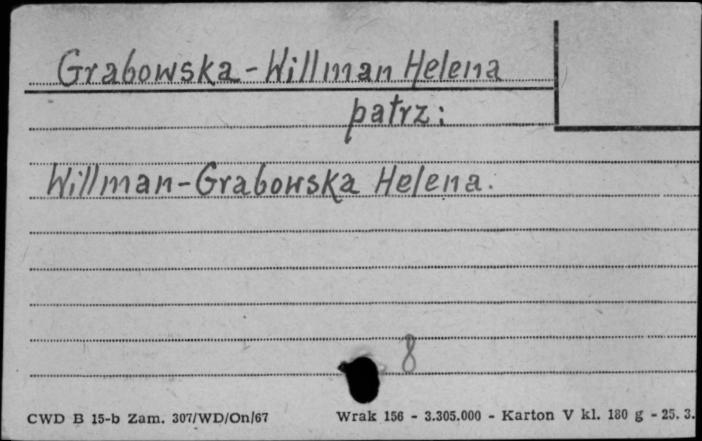 Grabowska-Willman Helena
patrz:
Willman-Grabowska Helena.
8
CWD B 15-b Zam. 307/WD/On/67 Wrak 156 - 3.305.000 - Karton V kl. 180 g - 25. 3.